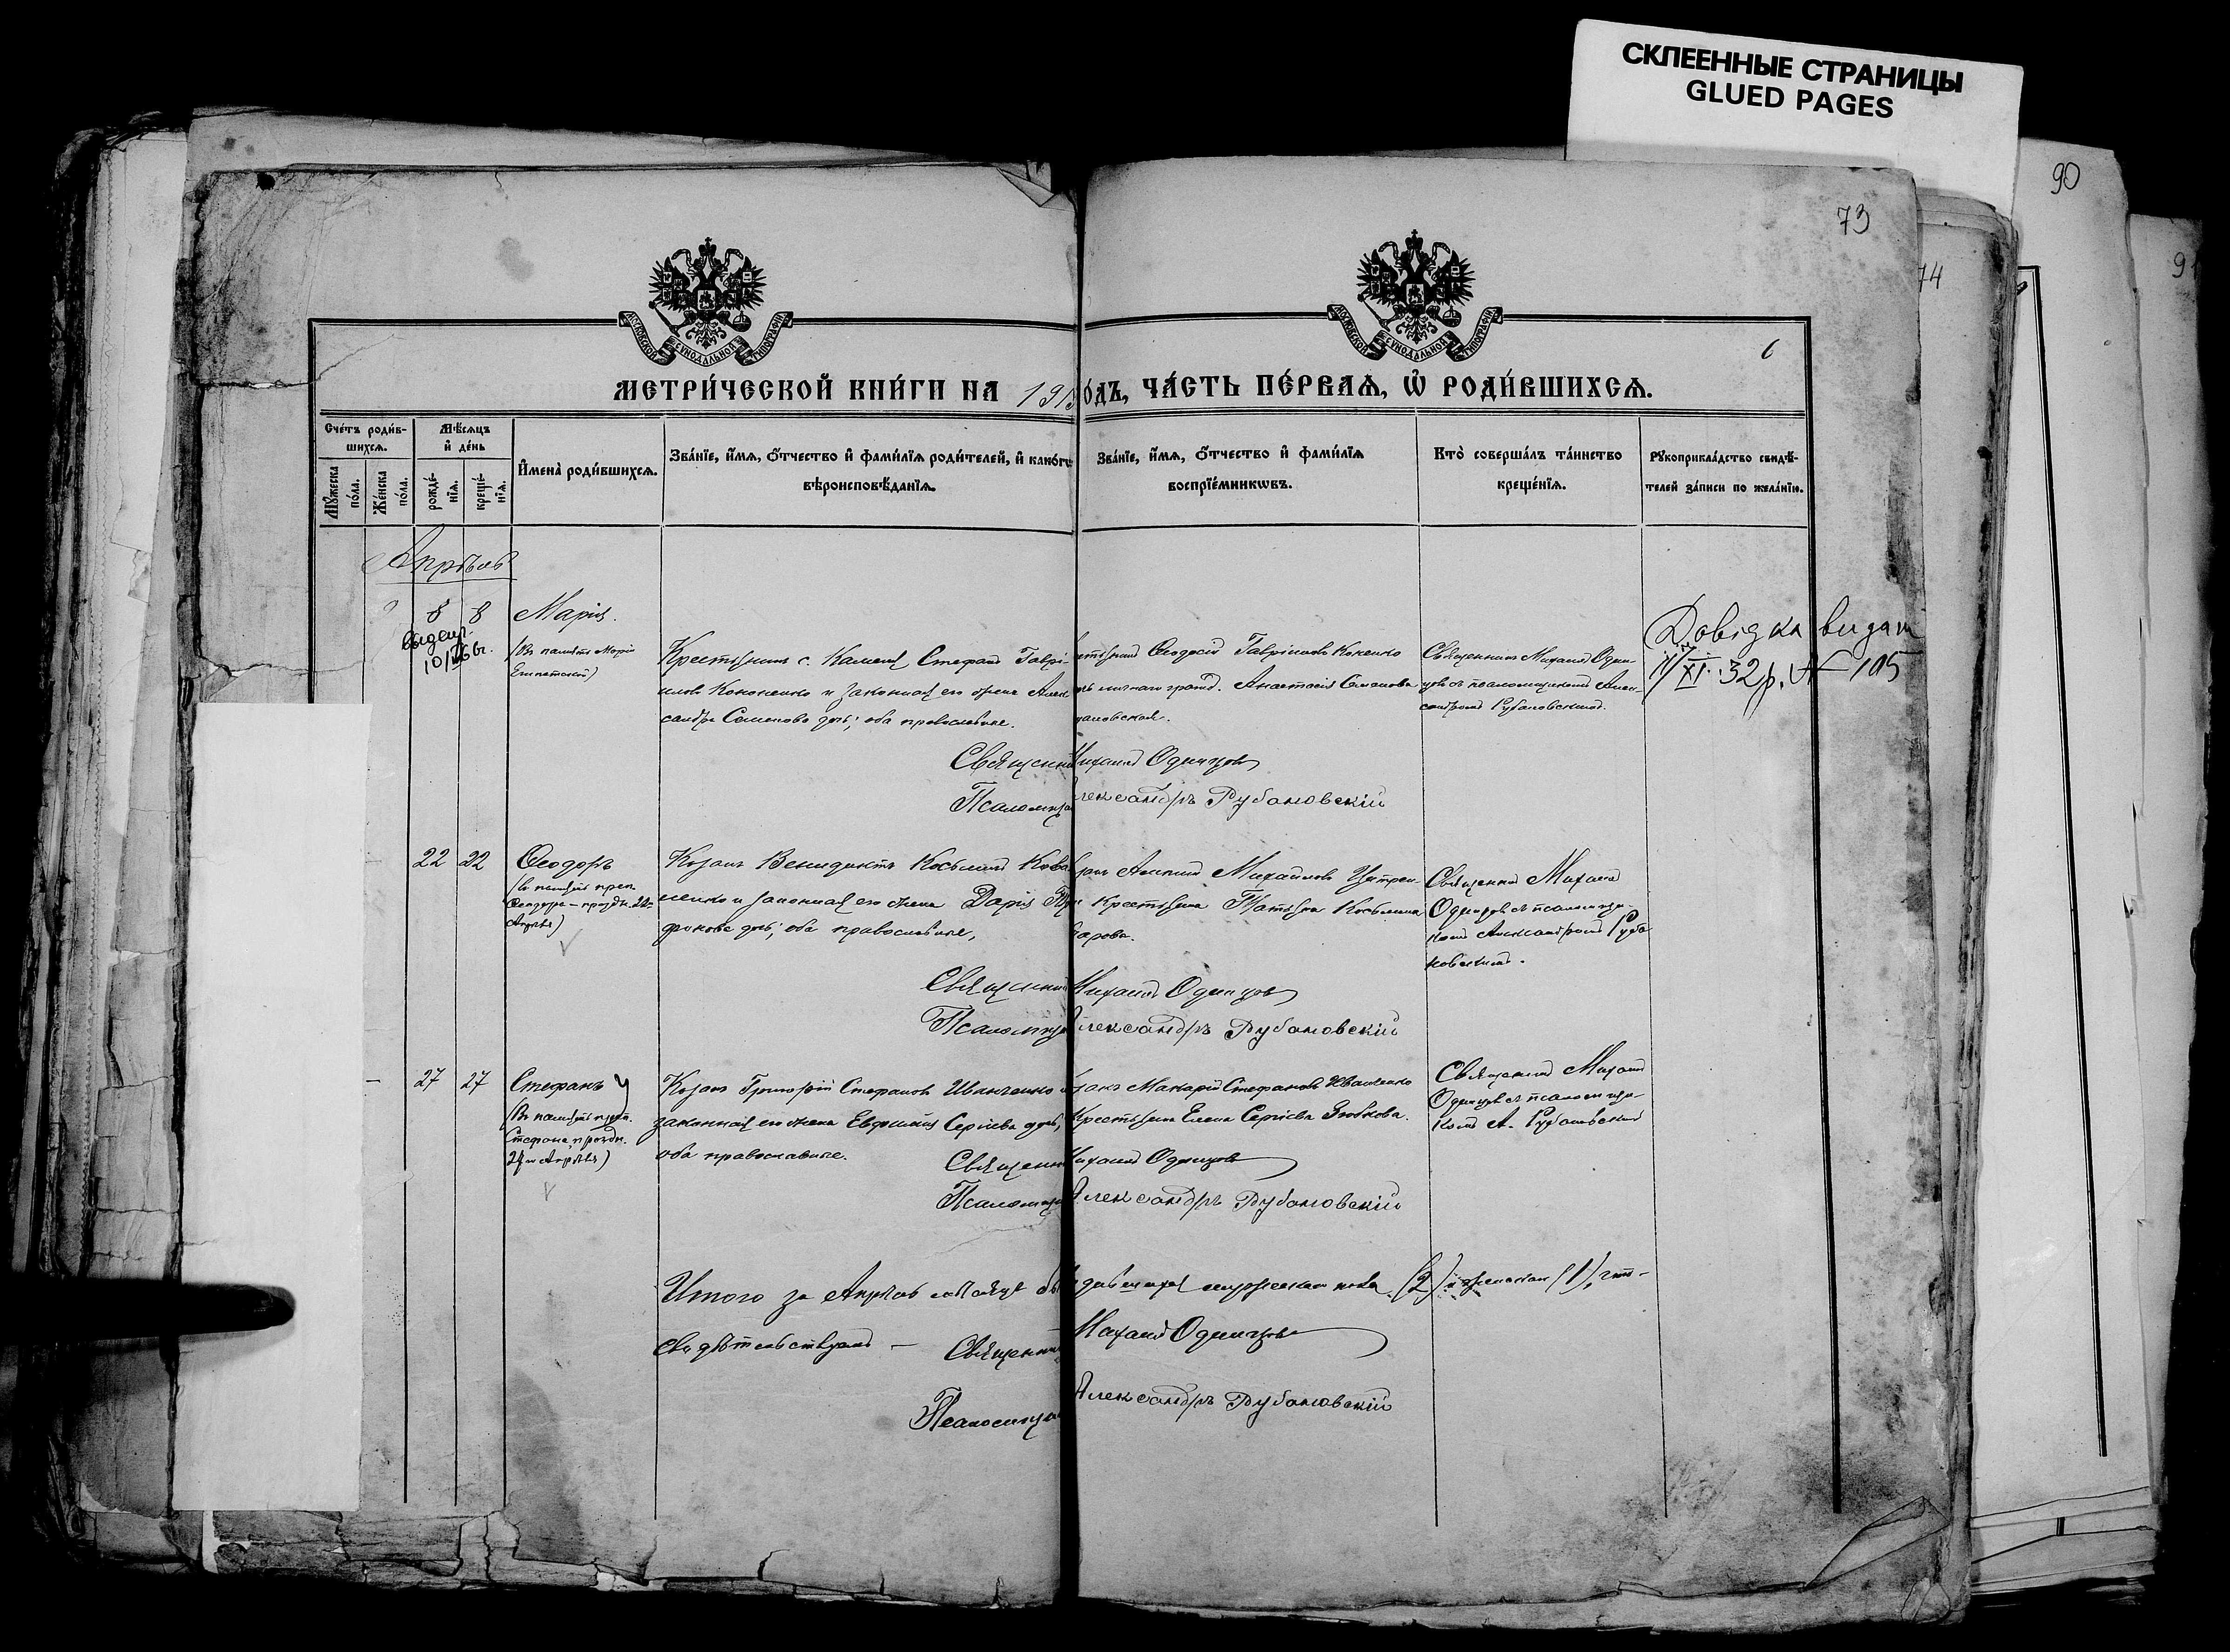 СКЛЕЕННЫЕ СТРАНИЦЫ
GLUED PAGES
90
73
74
6
МЕТРИ́ЧЕСКОЙ КНИ́ГИ НА 191
О́ДЪ, ЧА́СТЬ ПЕ́РВАѦ, Ѡ҆ РОДИ́ВШИХСѦ.
Сче́тъ роди́в-
шихсѧ.
Мѣ́сѧцъ
и҆ де́нь
Мꙋ́жеска по́ла.
Же́нска по́ла.
рожде́-
нїѧ.
креще́-
нїѧ.
И҆мена̀ роди́вшихсѧ.
Зва́нїе, и҆́мѧ, ѻ҆́тчество и҆ фами́лїѧ роди́телей, и҆ како́гѡ
вѣроисповѣ́данїѧ.
Зва́нїе, и҆́мѧ, ѻ҆́тчество и҆ фами́лїѧ
воспрїе́мникѡвъ.
Кто̀ соверша́лъ та́инство
креще́нїѧ.
Рꙋкоприкла́дство свидѣ́-
телей за́писи по жела́нїю.
Апрѣль
8 8 Марія.
(Въ память Маріи
Египетской)
Крестьянинъ с. Стефанъ Гаврі-
иловъ Кононенко и законная его жена Алек
сандра Семенова дочь; оба православные.
Ѳеодосій Гавріиловъ Кононенко
Анастасія Семенова
Священникъ Михаилъ Один-
цовъ съ псаломщикомъ Алек-
сандромъ Рубановскимъ.
Довідка видан
XI. 32 р. № 105
Священник
Михаилъ Одинцовъ
Псаломщ
лександръ Рубановскій
22 22 Ѳеодоръ
(въ память преп.
Ѳеодора – праздн. 22го
Апрѣля)
Козакъ Венедиктъ Косьминъ Кова
ленко и законная его жена Дарія
оба православные,
Михайловъ
Крестьянка Татьяна Косьмина
Священникъ Михаилъ
Одинцовъ съ псаломщи-
комъ Александромъ Руба
новскимъ.
Священник
Михаилъ Одинцовъ
Псаломщ
лександръ Рубановскій
27 27 Стефанъ
(въ память преп.
Стефана, праздн.
27го Апрѣля)
Козакъ Григорій Стефановъ Иващенко и
законная его жена Евфимія Сергіева дочь,
оба православные.
закъ Макарій Стефановъ Иващенко
Крестьянка Елена Сергіева Зюбкова.
Священникъ Михаилъ
Одинцовъ съ псаломщи-
комъ А. Рубановскимъ
Священн
Михаилъ Одинцовъ
Псаломщ
Александръ Рубановскій
Итого за Апрѣль мѣсяцъ
мужескаго пола (2) и женскаго (1), что
свидѣтельствуемъ –
Священни
Михаилъ Одинцовъ
Псаломщ
Александръ Рубановскій